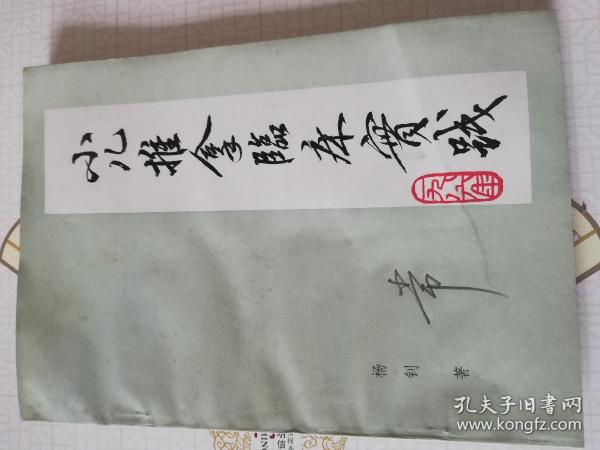 小儿推拿臨床實践
常
杨钊 著
孔夫子旧书网
www.kongfz.com